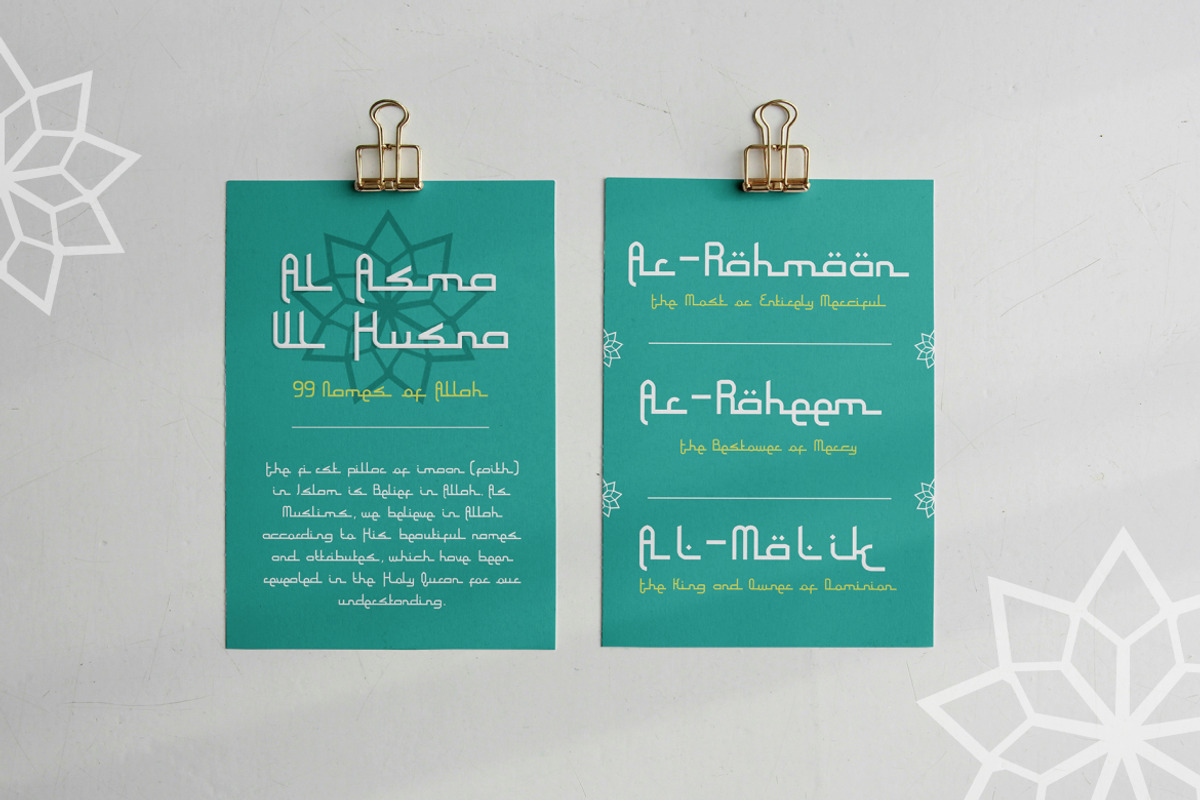 Al Asma
Ul Husna
99 Names of Allah
the first pillar of imaan (faith)
in Islam is Belief in Allah. As
Muslims, we believe in Allah
according to His beautiful names
and attributes, which have been
revealed in the Holy Quran for our
understanding.
Ar-Röhmöön
the Most or Entirely Merciful
Ar-Röheem
the Bestower of Mercy
Al-Mölik
the King and Owner of Dominion